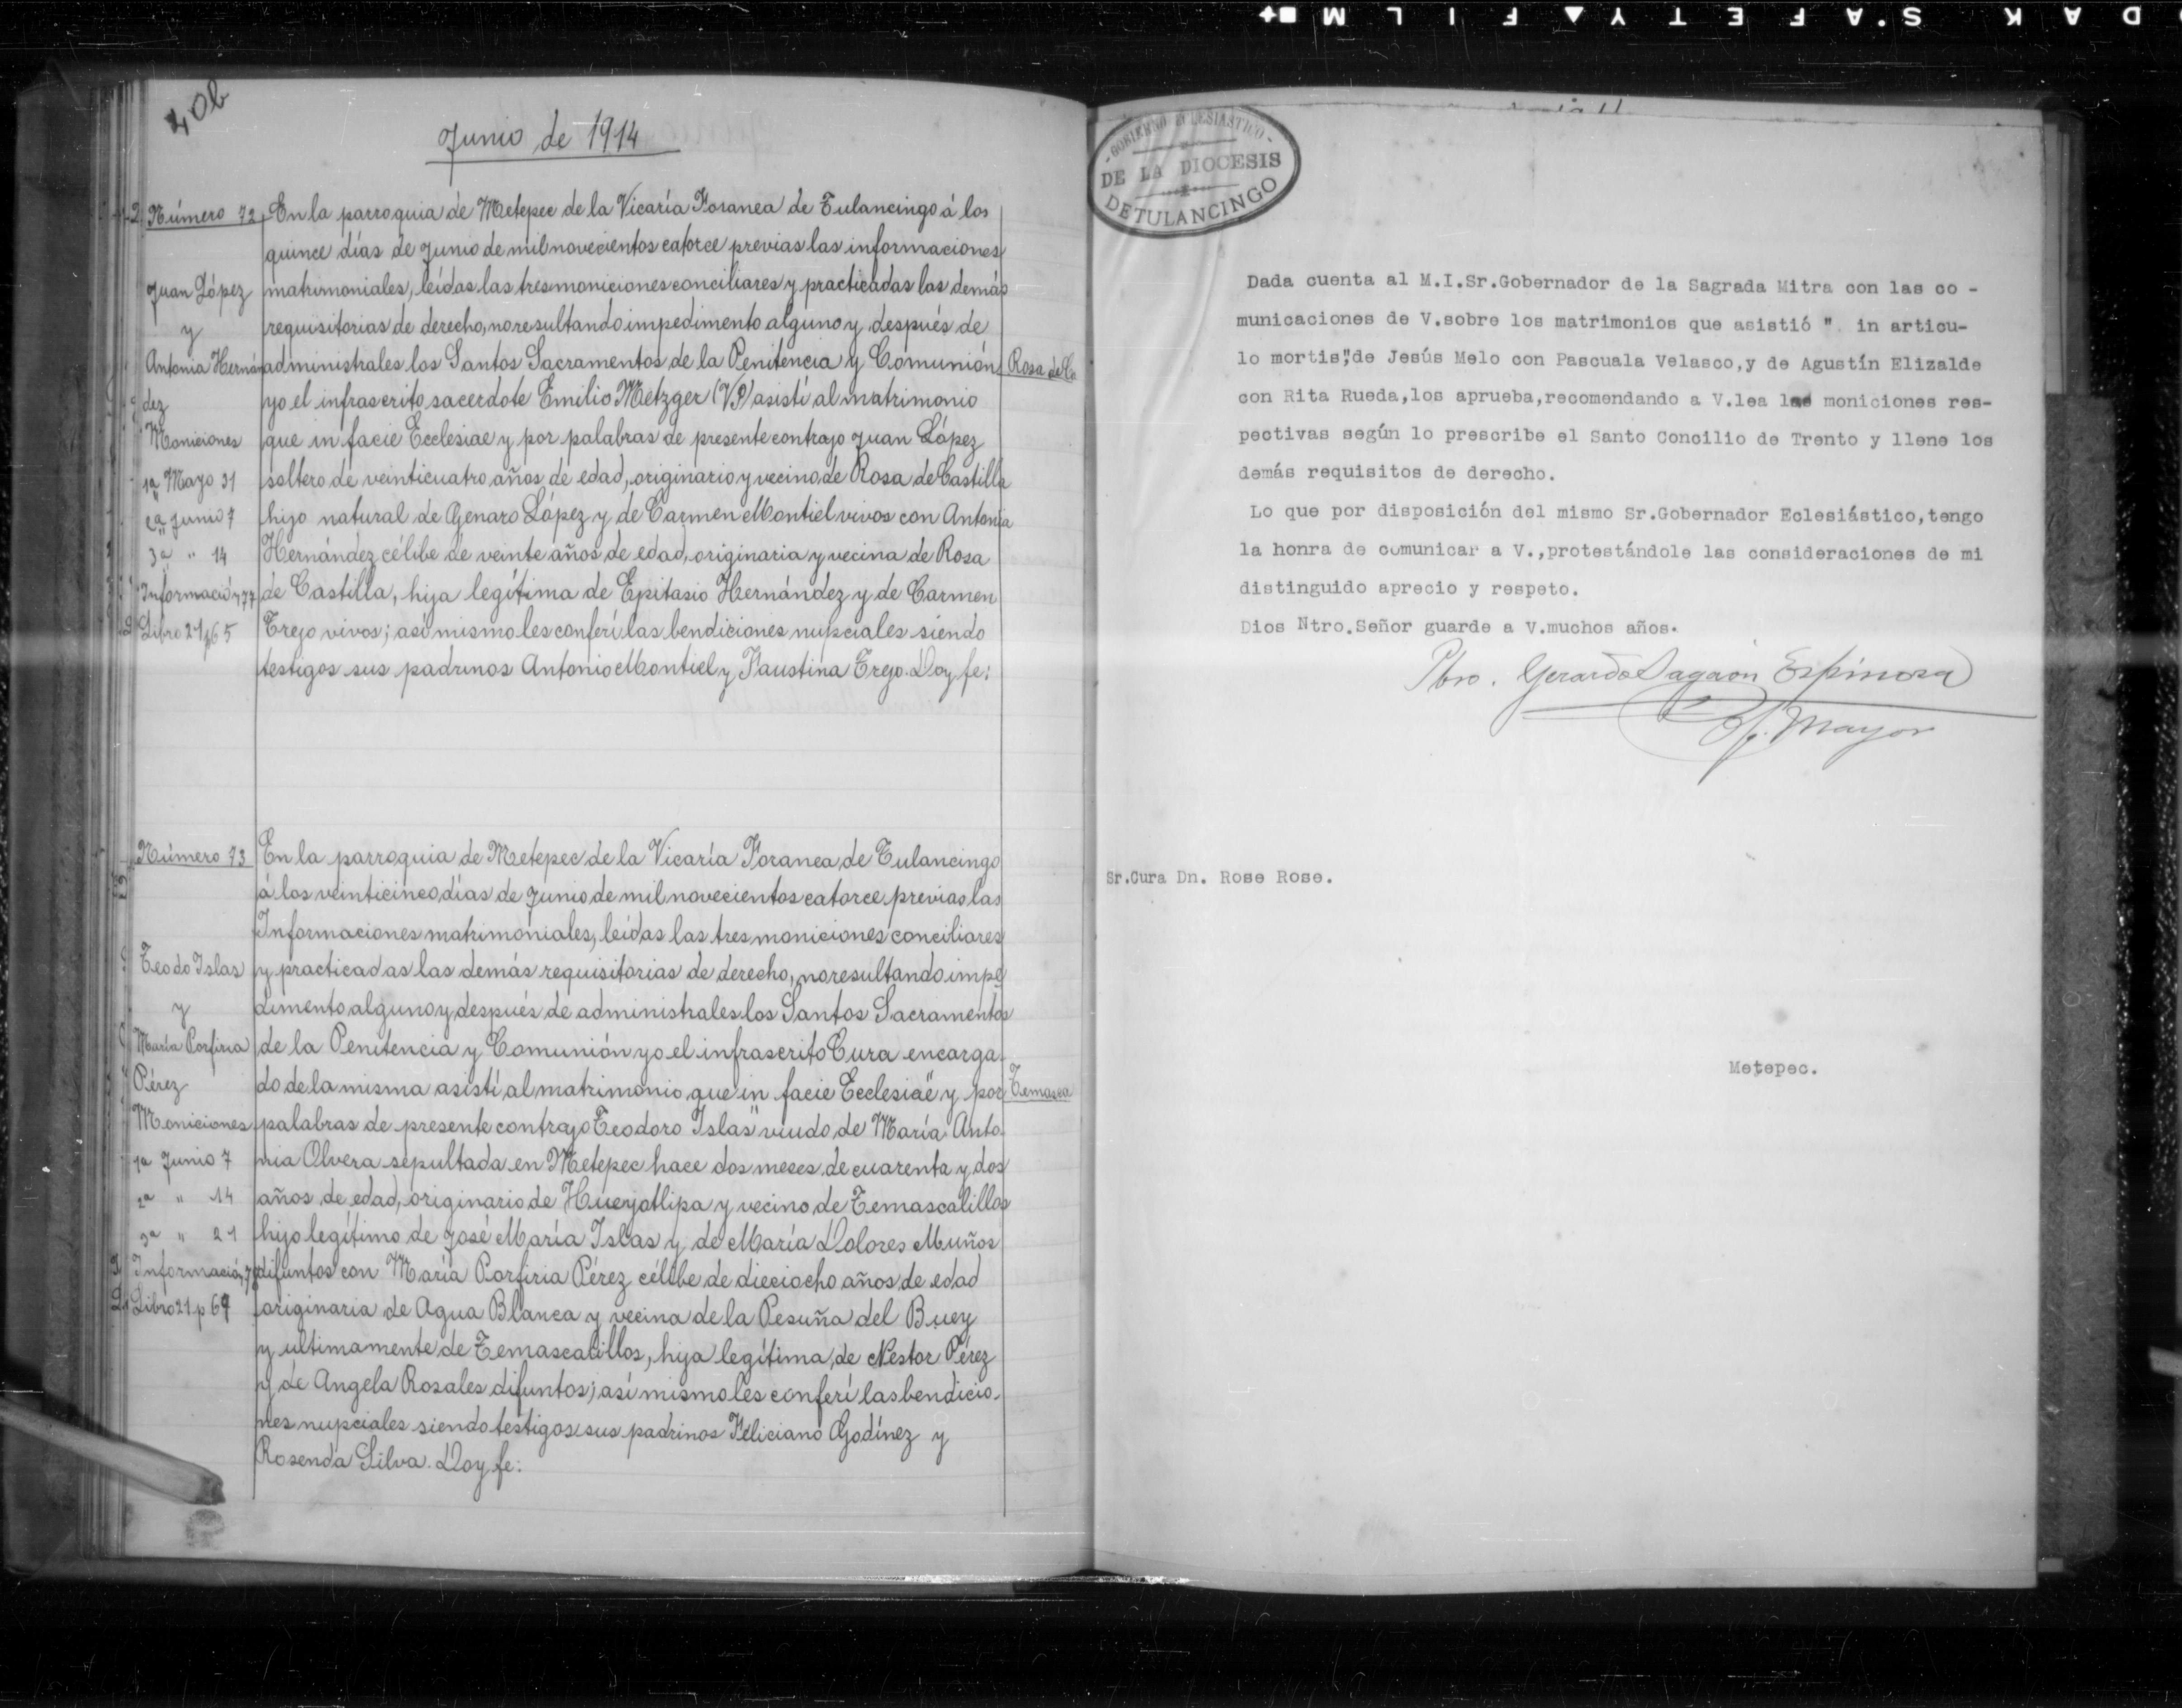 DAK S'AFETY▲FILM ■+
40b
Junio de 1914
Número 72
Juan López
y
Antonia Hernán
dez
Moniciones
1a Mayo 31
2a Junio 7
3a " 14
Información 77
Libro 21 p 65
En la parroquia de Metepec de la Vicaría Foranea de Tulancingo á los
quince días de Junio de mil novecientos catorce previas las informaciones
matrimoniales, leídas las tres moniciones conciliares y practicadas las demás
requisitorias de derecho, no resultando impedimento alguno y después de
administrales los Santos Sacramentos de la Penitencia y Comunión
yo el infrascrito sacerdote Emilio Metzger (VP) asistí al matrimonio
que in facie Ecclesiae y por palabras de presente contrajo Juan López
soltero de veinticuatro años de edad, originario y vecino de Rosa de Castilla
hijo natural de Genaro López y de Carmen Montiel vivos con Antonia
Hernández célibe de veinte años de edad, originaria y vecina de Rosa
de Castilla, hija legítima de Epitasio Hernández y de Carmen
Trejo vivos; así mismo les conferí las bendiciones nupciales siendo
testigos sus padrinos Antonio Montiel y Faustina Trejo. Doy fe:
Rosa de C
Número 73
Teodo Islas
y
María Porfiria
Pérez
Moniciones
1a Junio 7
2a " 14
3a " 21
Información 78
Libro 21 p 69
En la parroquia de Metepec de la Vicaría Foranea, de Tulancingo
á los veinticinco días de Junio de mil novecientos catorce, previas las
Informaciones matrimoniales, leídas las tres moniciones conciliares
y practicadas las demás requisitorias de derecho, no resultando impe
dimento alguno y después de administrales los Santos Sacramentos
de la Penitencia y Comunión yo el infrascrito Cura encarga
do de la misma asistí al matrimonio que in facie Ecclesiae" y por
palabras de presente contrajo Teodoro Islas" viudo de María Anto
nia Olvera sepultada en Metepec hace dos meses de cuarenta y dos
años de edad, originario de Hueyotlipa y vecino de Temascalillos
hijo legítimo de José María Islas y de María Dolores Muños
difuntos con María Porfiria Pérez célibe de dieciocho años de edad
originaria de Agua Blanca y vecina de la Pesuña del Buey
y ultimamente de Temascalillos, hija legítima, de Nestor Pérez
y de Angela Rosales difuntos; así mismo les conferí las bendicio-
nes nupciales siendo testigos sus padrinos Feliciano Godínez y
Rosenda Silva. Doy fe:
Temasca
GOBIERNO ECLESIASTICO
DE LA DIOCESIS
DE TULANCINGO
Dada cuenta al M.I.Sr.Gobernador de la Sagrada Mitra con las co -
municaciones de V.sobre los matrimonios que asistió " in articu-
lo mortis",de Jesús Melo con Pascuala Velasco,y de Agustín Elizalde
con Rita Rueda,los aprueba,recomendando a V.lea las moniciones res-
pectivas según lo prescribe el Santo Concilio de Trento y llene los
demás requisitos de derecho.
Lo que por disposición del mismo Sr.Gobernador Eclesiástico,tengo
la honra de comunicar a V.,protestándole las consideraciones de mi
distinguido aprecio y respeto.
Dios Ntro.Señor guarde a V.muchos años.
Pbro. Gerardo Sagaón Espinosa
Of. Mayor
Sr.Cura Dn. Rose Rose.
Metepec.